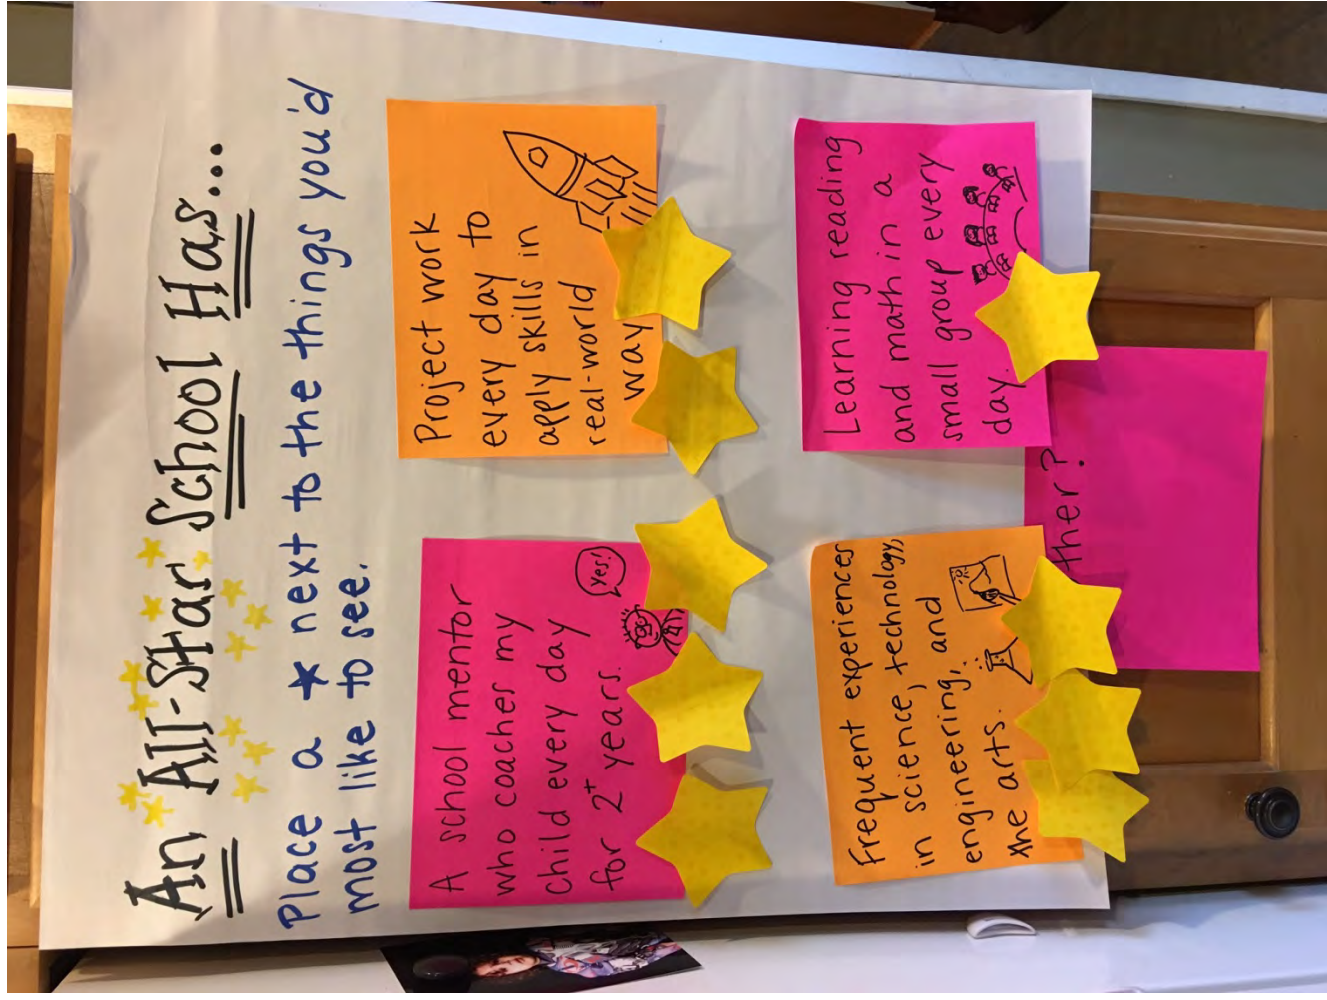 An All-Star School Has...
Place a ★ next to the things you'd
most like to see.
A school mentor
who coaches my
child every day
for 2+ years.
Yes!
Project work
every day to
apply skills in
real-world
way
Frequent experiences
in science, technology,
engineering, and
the arts.
Learning reading
and math in a
small group every
day.
ther?